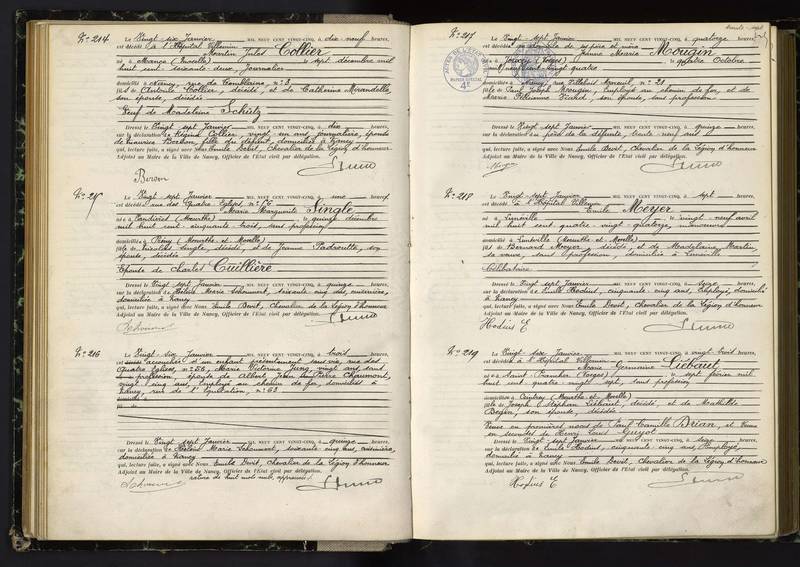 N° 214
Le Vingt six Janvier MIL NEUF CENT VINGT-CINQ, à dix neuf heures,
est décédé à l'Hôpital Villemin
Martin Jules Collier
né à Nança (Moselle) le sept décembre mil
huit cent soixante deux, Journalier
domicilié à Nancy, rue de n° 3
fils de Antoine Collier, décédé, et de Catherine Mirandelle,
son épouse, décédée
Veuf de Madeleine Schietz
Dressé le Vingt sept Janvier MIL NEUF CENT VINGT-CINQ, à dix heures,
sur la déclaration de Régine Collier, vingt six ans, journalière, épouse
de Maurice Berthon, fille du défunt, domiciliée à Nancy
qui, lecture faite, a signé avec Nous Emile Devit, Chevalier de la Légion d'honneur
Adjoint au Maire de la Ville de Nancy, Officier de l'État civil par délégation.
N° 215
Le Vingt sept Janvier MIL NEUF CENT VINGT-CINQ, à une heures,
est décédée rue des Quatre Eglises n° 66
Marie Marguerite Single
née à (Meurthe) le quinze décembre
mil huit cent cinquante trois, sans profession
domiciliée à (Meurthe et Moselle)
fille de Nicolas Single, décédé, et de Jeanne Padroutte, son
épouse, décédée
Epouse de Charles Cuillière
Dressé le Vingt sept Janvier MIL NEUF CENT VINGT-CINQ, à quinze heures,
sur la déclaration de Hélène Marie Schoumert, soixante cinq ans, cuisinière,
domiciliée à Nancy
qui, lecture faite, a signé avec Nous Emile Devit, Chevalier de la Légion d'honneur
Adjoint au Maire de la Ville de Nancy, Officier de l'État civil par délégation.
N° 216
Le Vingt six Janvier MIL NEUF CENT VINGT-CINQ, à trois heures,
est accouchée d'un enfant présentement sans vie, rue des
Quatre Eglises, n° 66, Marie Victorine Jung, vingt ans, sans
profession, épouse de Albert Jean Pierre Chaumont,
vingt cinq ans, employé au chemin de fer, domiciliés à
Nancy, rue de l'Equitation, n° 63
Dressé le Vingt sept Janvier MIL NEUF CENT VINGT-CINQ, à quinze heures,
sur la déclaration de Hélène Marie Schoumert, soixante cinq ans, cuisinière,
domiciliée à Nancy
qui, lecture faite, a signé avec Nous Emile Devit, Chevalier de la Légion d'honneur
Adjoint au Maire de la Ville de Nancy, Officier de l'État civil par délégation.
N° 217
Le Vingt sept Janvier MIL NEUF CENT VINGT-CINQ, à quatorze heures,
est décédée au domicile de ses père et mère
Jeanne Marie Mougin
née à (Vosges) le quatre Octobre
neuf cent vingt quatre
domiciliée à Nancy, n° 21
fille de Paul Joseph Mougin, Employé au chemin de fer, et de
Marie son épouse, sans profession
Dressé le Vingt sept Janvier MIL NEUF CENT VINGT-CINQ, à quinze heures,
sur la déclaration du père de la défunte, trente neuf ans
qui, lecture faite, a signé avec Nous Emile Devit, Chevalier de la Légion d'honneur
Adjoint au Maire de la Ville de Nancy, Officier de l'État civil par délégation.
N° 218
Le Vingt sept Janvier MIL NEUF CENT VINGT-CINQ, à sept heures,
est décédé à l'Hôpital Villemin
Emile Meyer
né à Lunéville le vingt neuf avril
mil huit cent quatre vingt quatorze, manœuvre
domicilié à Lunéville (Meurthe et Moselle)
fils de Bernard Meyer, décédé, et de Madeleine Martin,
sa veuve, sans profession, domiciliée à Lunéville
Célibataire
Dressé le Vingt sept Janvier MIL NEUF CENT VINGT-CINQ, à seize heures,
sur la déclaration de Emile Hodius, cinquante cinq ans, Employé, domicilié
à Nancy
qui, lecture faite, a signé avec Nous Emile Devit, Chevalier de la Légion d'honneur
Adjoint au Maire de la Ville de Nancy, Officier de l'État civil par délégation.
Hodius E
N° 219
Le Vingt six Janvier MIL NEUF CENT VINGT-CINQ, à vingt trois heures,
est décédée à l'Hôpital Villemin
Marie Germaine Liébaut
née à Saint (Vosges) le sept février mil
huit cent quatre vingt sept, sans profession
domiciliée à Ceintrey (Meurthe et Moselle)
fille de Joseph Stéphan Liébaut, décédé, et de Mathilde
Begin, son épouse, décédée
Veuve en premières noces de Paul Camille Brian, et Veuve
en secondes de Henri Louis Guyot
Dressé le Vingt sept Janvier MIL NEUF CENT VINGT-CINQ, à seize heures,
sur la déclaration de Emile Hodius, cinquante cinq ans, Employé,
domicilié à Nancy
qui, lecture faite, a signé avec Nous Emile Devit, Chevalier de la Légion d'honneur
Adjoint au Maire de la Ville de Nancy, Officier de l'État civil par délégation.
Hodius E